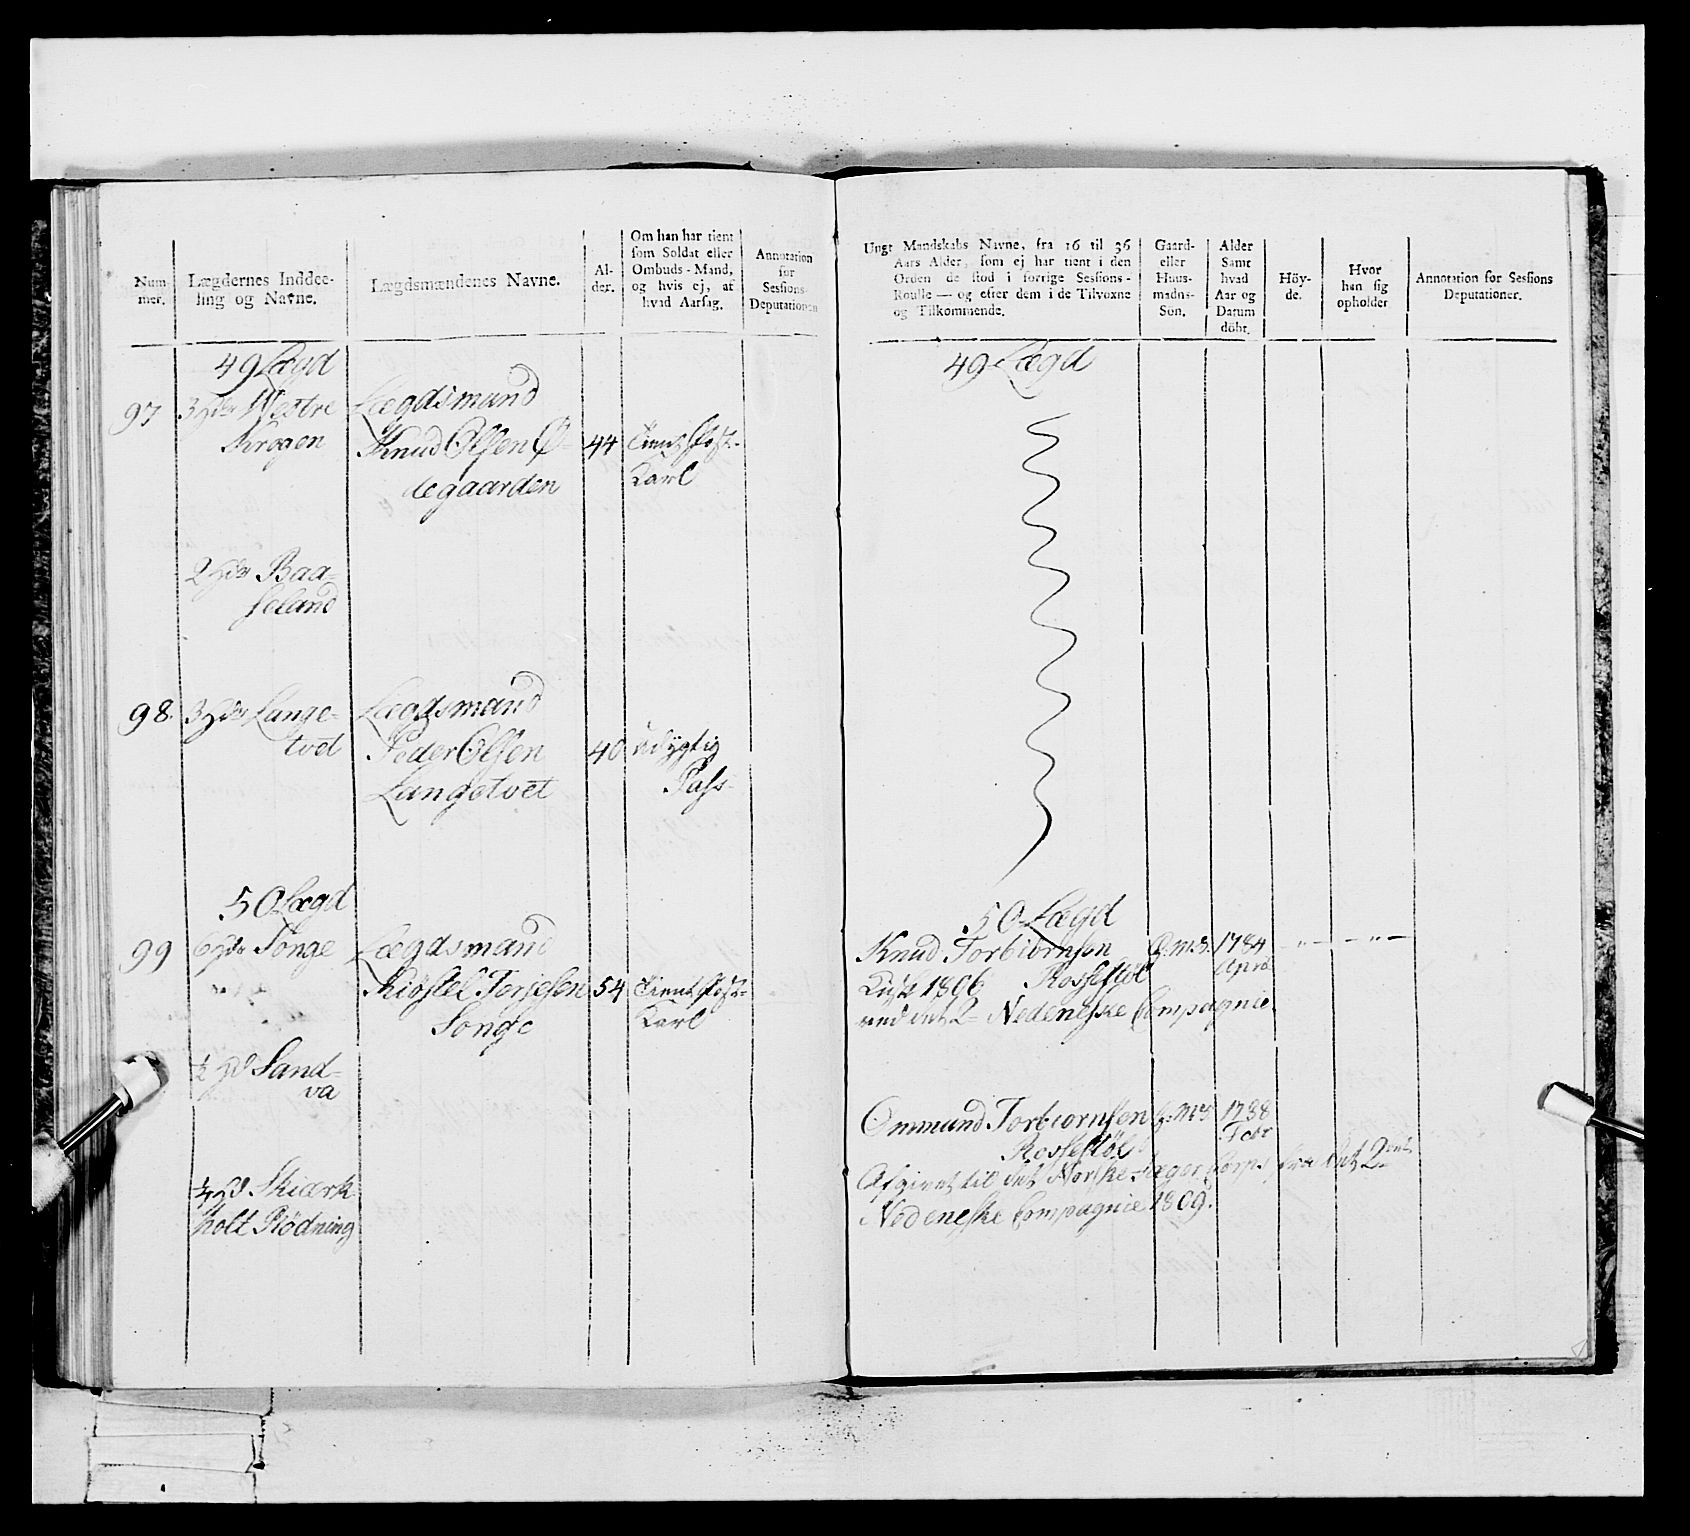 Num
mer.
Lægdernes Inddee-
ling og Navne.
Lægdsmændenes Navne.
Al-
der.
Om han har tient
som Soldat eller
Ombuds-Mand,
og hvis ej, af
hvad Aarsag.
Annotation
for
Sessions-
Deputationen
49 Lægd
97 3 Hder Westre
Krogen
Lægdsmand
Knud Olsen Ø-
degaarden
44
Tient
Karl
2 Hder Baa-
seland
98. 3 Hder Lange-
tvet
Lægdsmand
Peder Olsen
Langetvet
40
udygtig
Pass
50 Lægd
99 6 Hder Songe
Lægdsmand
Kiøstel Terjesen
Songe
54
Tient
Karl
½ Hd Sand-
va
¼ Hd Skiærk-
holt Rødning
Ungt Mandskabs Navne, fra 16 til 36
Aars Alder, som ej har tient i den
Orden de stod i forrige Sessions-
Roulle — og efter dem i de Tilvoxne
og Tilkommende.
Gaard-
eller
Huus-
mands-
Sön.
Alder
Samt
hvad
Aar og
Datum
döbt.
Höy-
de.
Hvor
han sig
opholder
Annotation for Sessions
Deputationer.
49 Lægd
50 Lægd
Knud Torbiørnsen
Rossestøl
1784
Apr
1806
ved det 2 Nedeneske Compagnie
Ommund Torbiørnsen
Rossestøl
1788
Febr
Afgivet til det Norske Jæger Corps fra det 2det
Nedeneske Compagnie 1809.